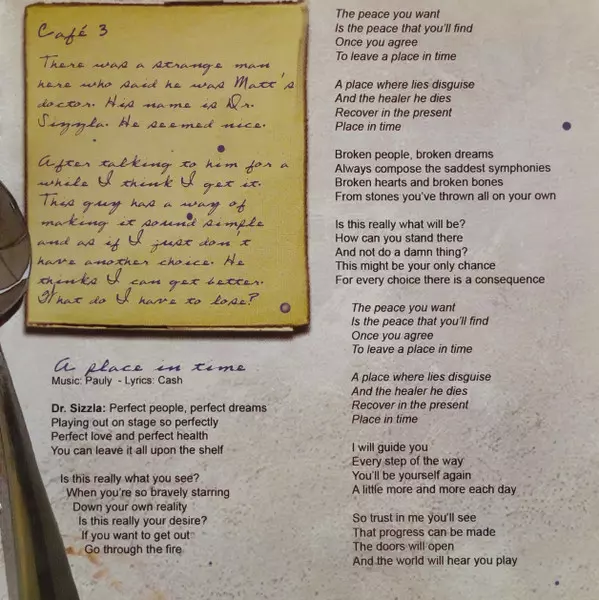 Café 3
There was a strange man
here who said he was Matt's
doctor. His name is Dr.
Sizzla. He seemed nice.
After talking to him for a
while I think I get it.
This guy has a way of
making it sound simple
and as if I just don't
have another choice. He
thinks I can get better.
What do I have to lose?
A place in time
Music: Pauly - Lyrics: Cash
Dr. Sizzla: Perfect people, perfect dreams
Playing out on stage so perfectly
Perfect love and perfect health
You can leave it all upon the shelf
Is this really what you see?
When you're so bravely starring
Down your own reality
Is this really your desire?
If you want to get out
Go through the fire
The peace you want
Is the peace that you'll find
Once you agree
To leave a place in time
A place where lies disguise
And the healer he dies
Recover in the present
Place in time
Broken people, broken dreams
Always compose the saddest symphonies
Broken hearts and broken bones
From stones you've thrown all on your own
Is this really what will be?
How can you stand there
And not do a damn thing?
This might be your only chance
For every choice there is a consequence
The peace you want
Is the peace that you'll find
Once you agree
To leave a place in time
A place where lies disguise
And the healer he dies
Recover in the present
Place in time
I will guide you
Every step of the way
You'll be yourself again
A little more and more each day
So trust in me you'll see
That progress can be made
The doors will open
And the world will hear you play